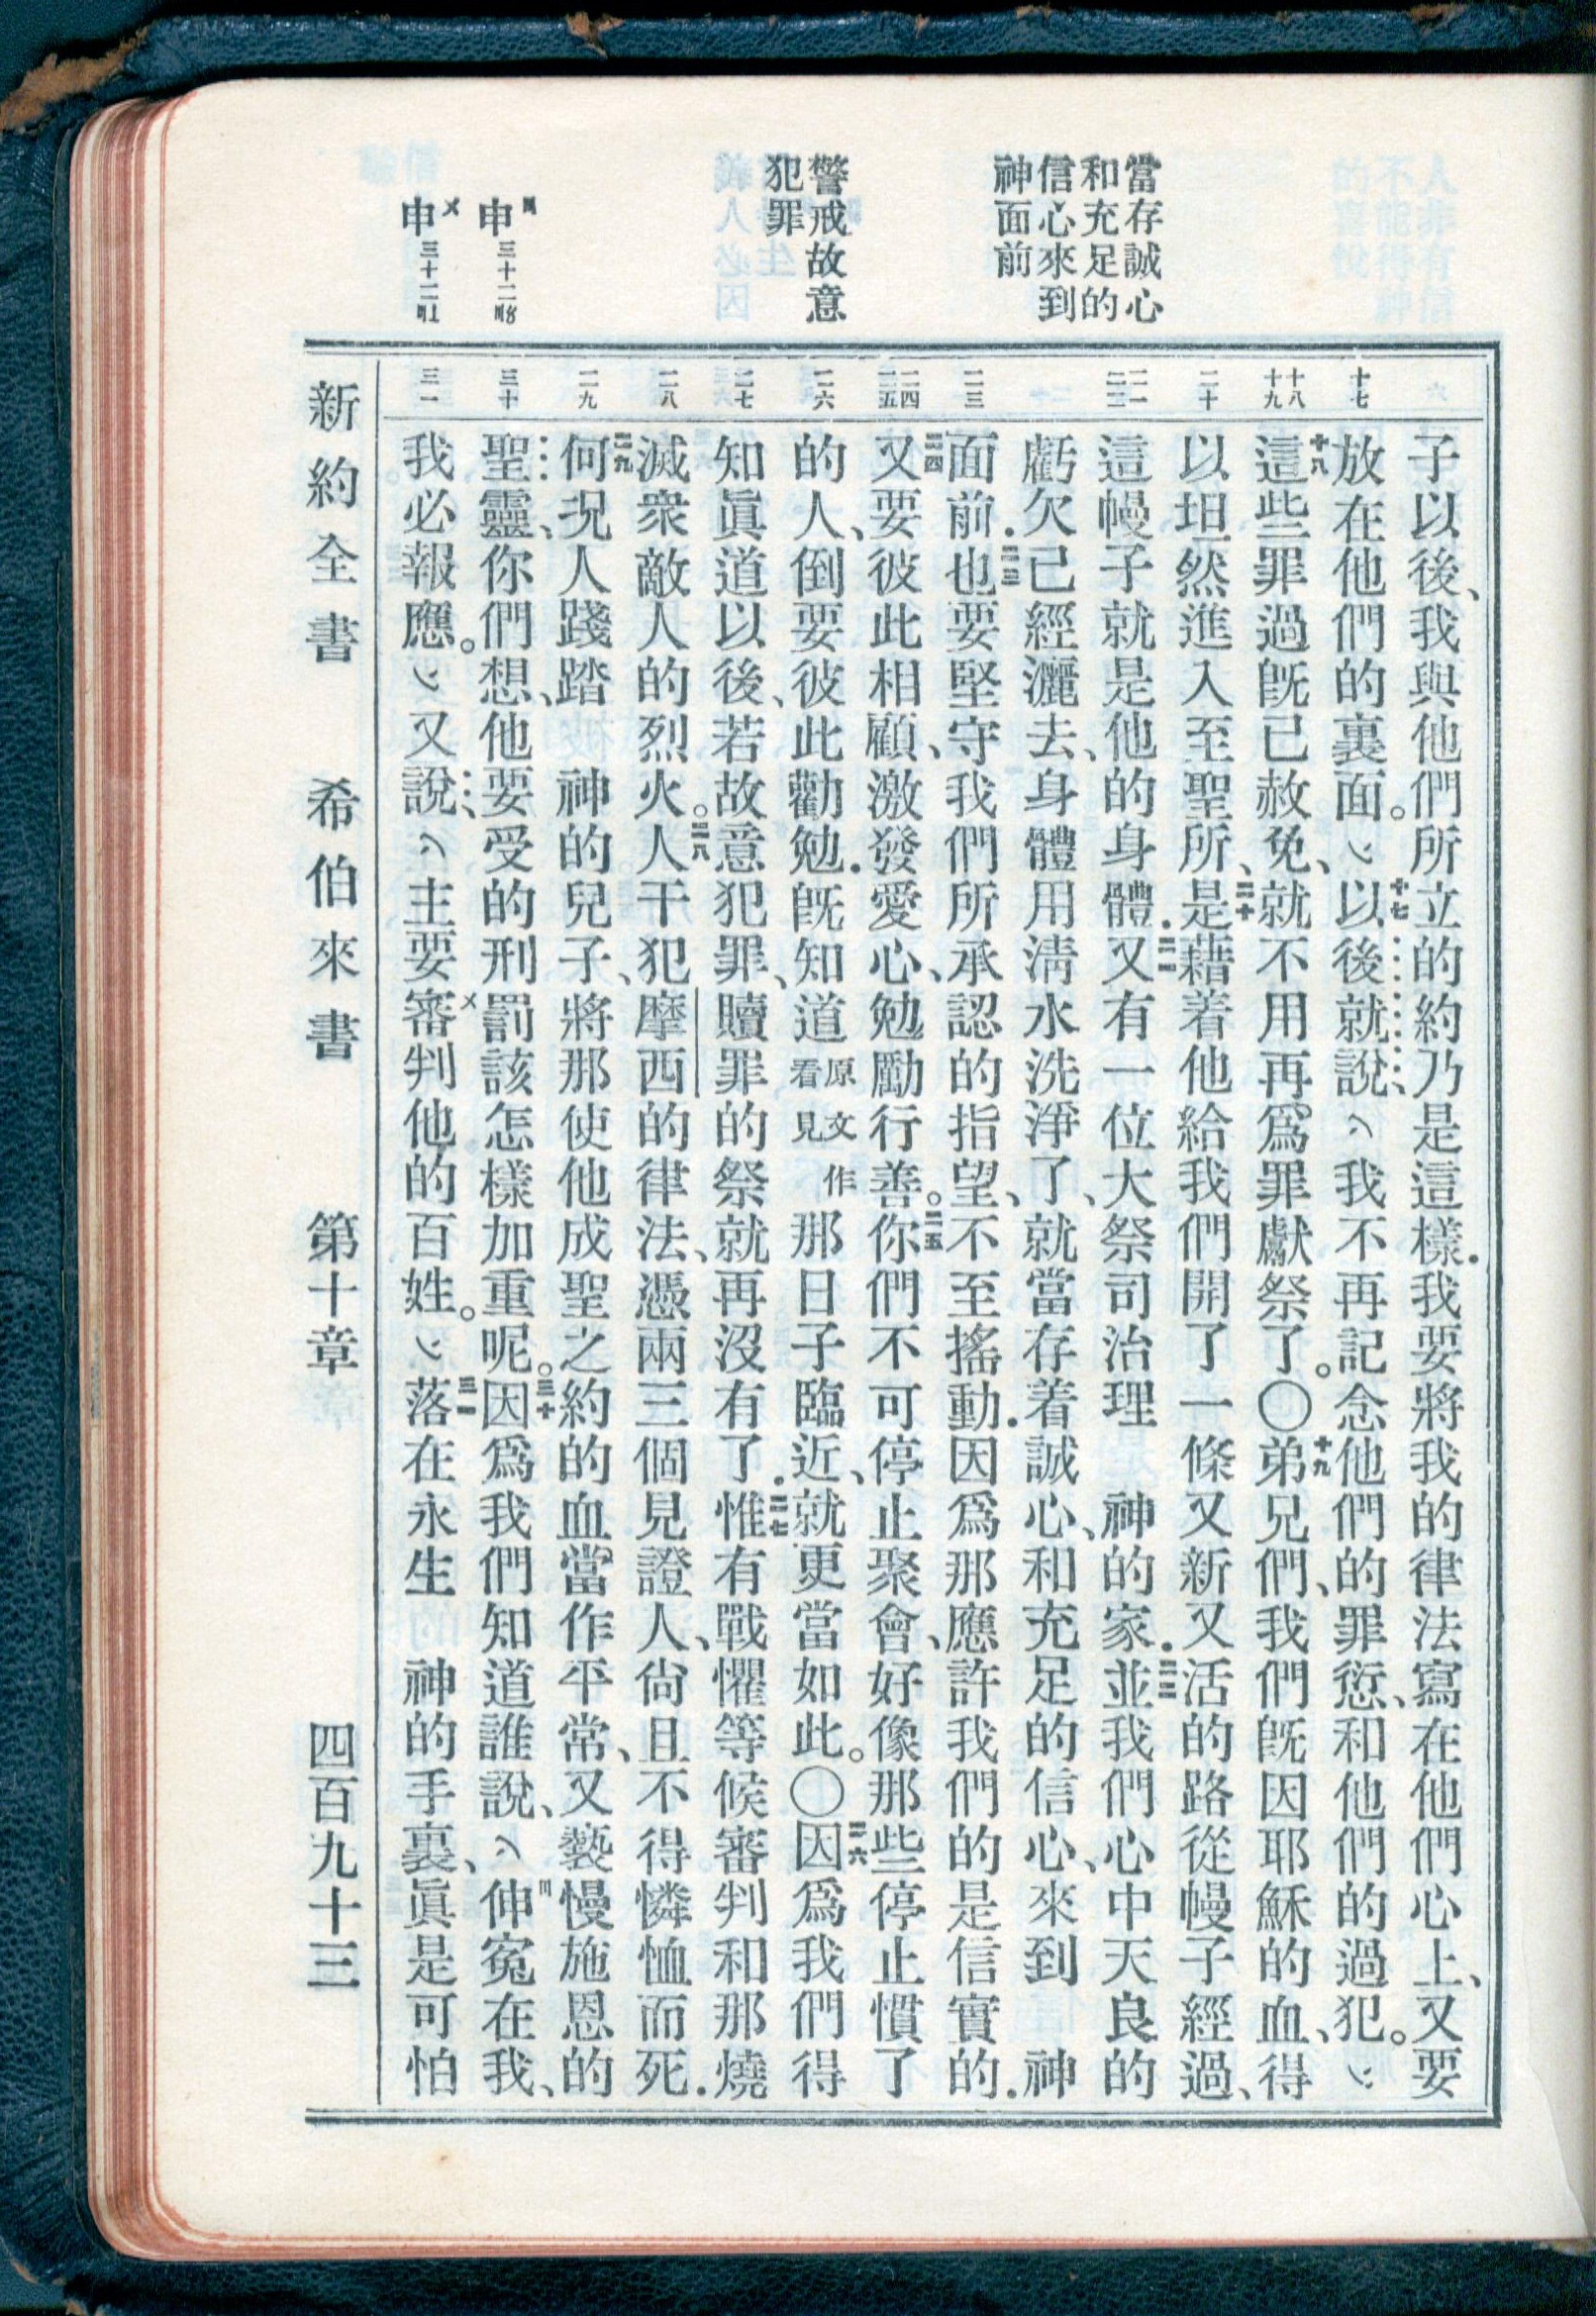 當存誠心
和充足的
信心來到
神面前
警戒故意
犯罪
申三十二
申三十二
十七
十八
十九
二十
二一
二二
二三
二四
二五
二六
二七
二八
二九
三十
三一
子以後、我與他們所立的約乃是這樣．我要將我的律法寫在他們心上、又要
放在他們的裏面。﹀十七以後就說、︿我不再記念他們的罪愆、和他們的過犯。﹀
十八這些罪過旣已赦免、就不用再爲罪獻祭了。〇十九弟兄們、我們旣因耶穌的血、得
以坦然進入至聖所、二十是藉着他給我們開了一條又新又活的路從幔子經過、
這幔子就是他的身體．二一又有一位大祭司治理　神的家．二二並我們心中天良的
虧欠已經灑去、身體用淸水洗淨了、就當存着誠心、和充足的信心、來到　神
面前．二三也要堅守我們所承認的指望、不至搖動．因爲那應許我們的是信實的．
二四又要彼此相顧、激發愛心、勉勵行善。二五你們不可停止聚會、好像那些停止慣了
的人、倒要彼此勸勉．旣知道原文作看見那日子臨近、就更當如此。〇二六因爲我們得
知眞道以後、若故意犯罪、贖罪的祭就再沒有了．二七惟有戰懼等候審判和那燒
滅衆敵人的烈火。二八人干犯摩西的律法、憑兩三個見證人、尙且不得憐恤而死．
二九何況人踐踏　神的兒子、將那使他成聖之約的血當作平常、又褻慢施恩的
聖靈、你們想、他要受的刑罰該怎樣加重呢。三十因爲我們知道誰說、︿伸冤在我、
我必報應。﹀又說、︿主要審判他的百姓。﹀三一落在永生　神的手裏、眞是可怕
新約全書　希伯來書　第十章　四百九十三